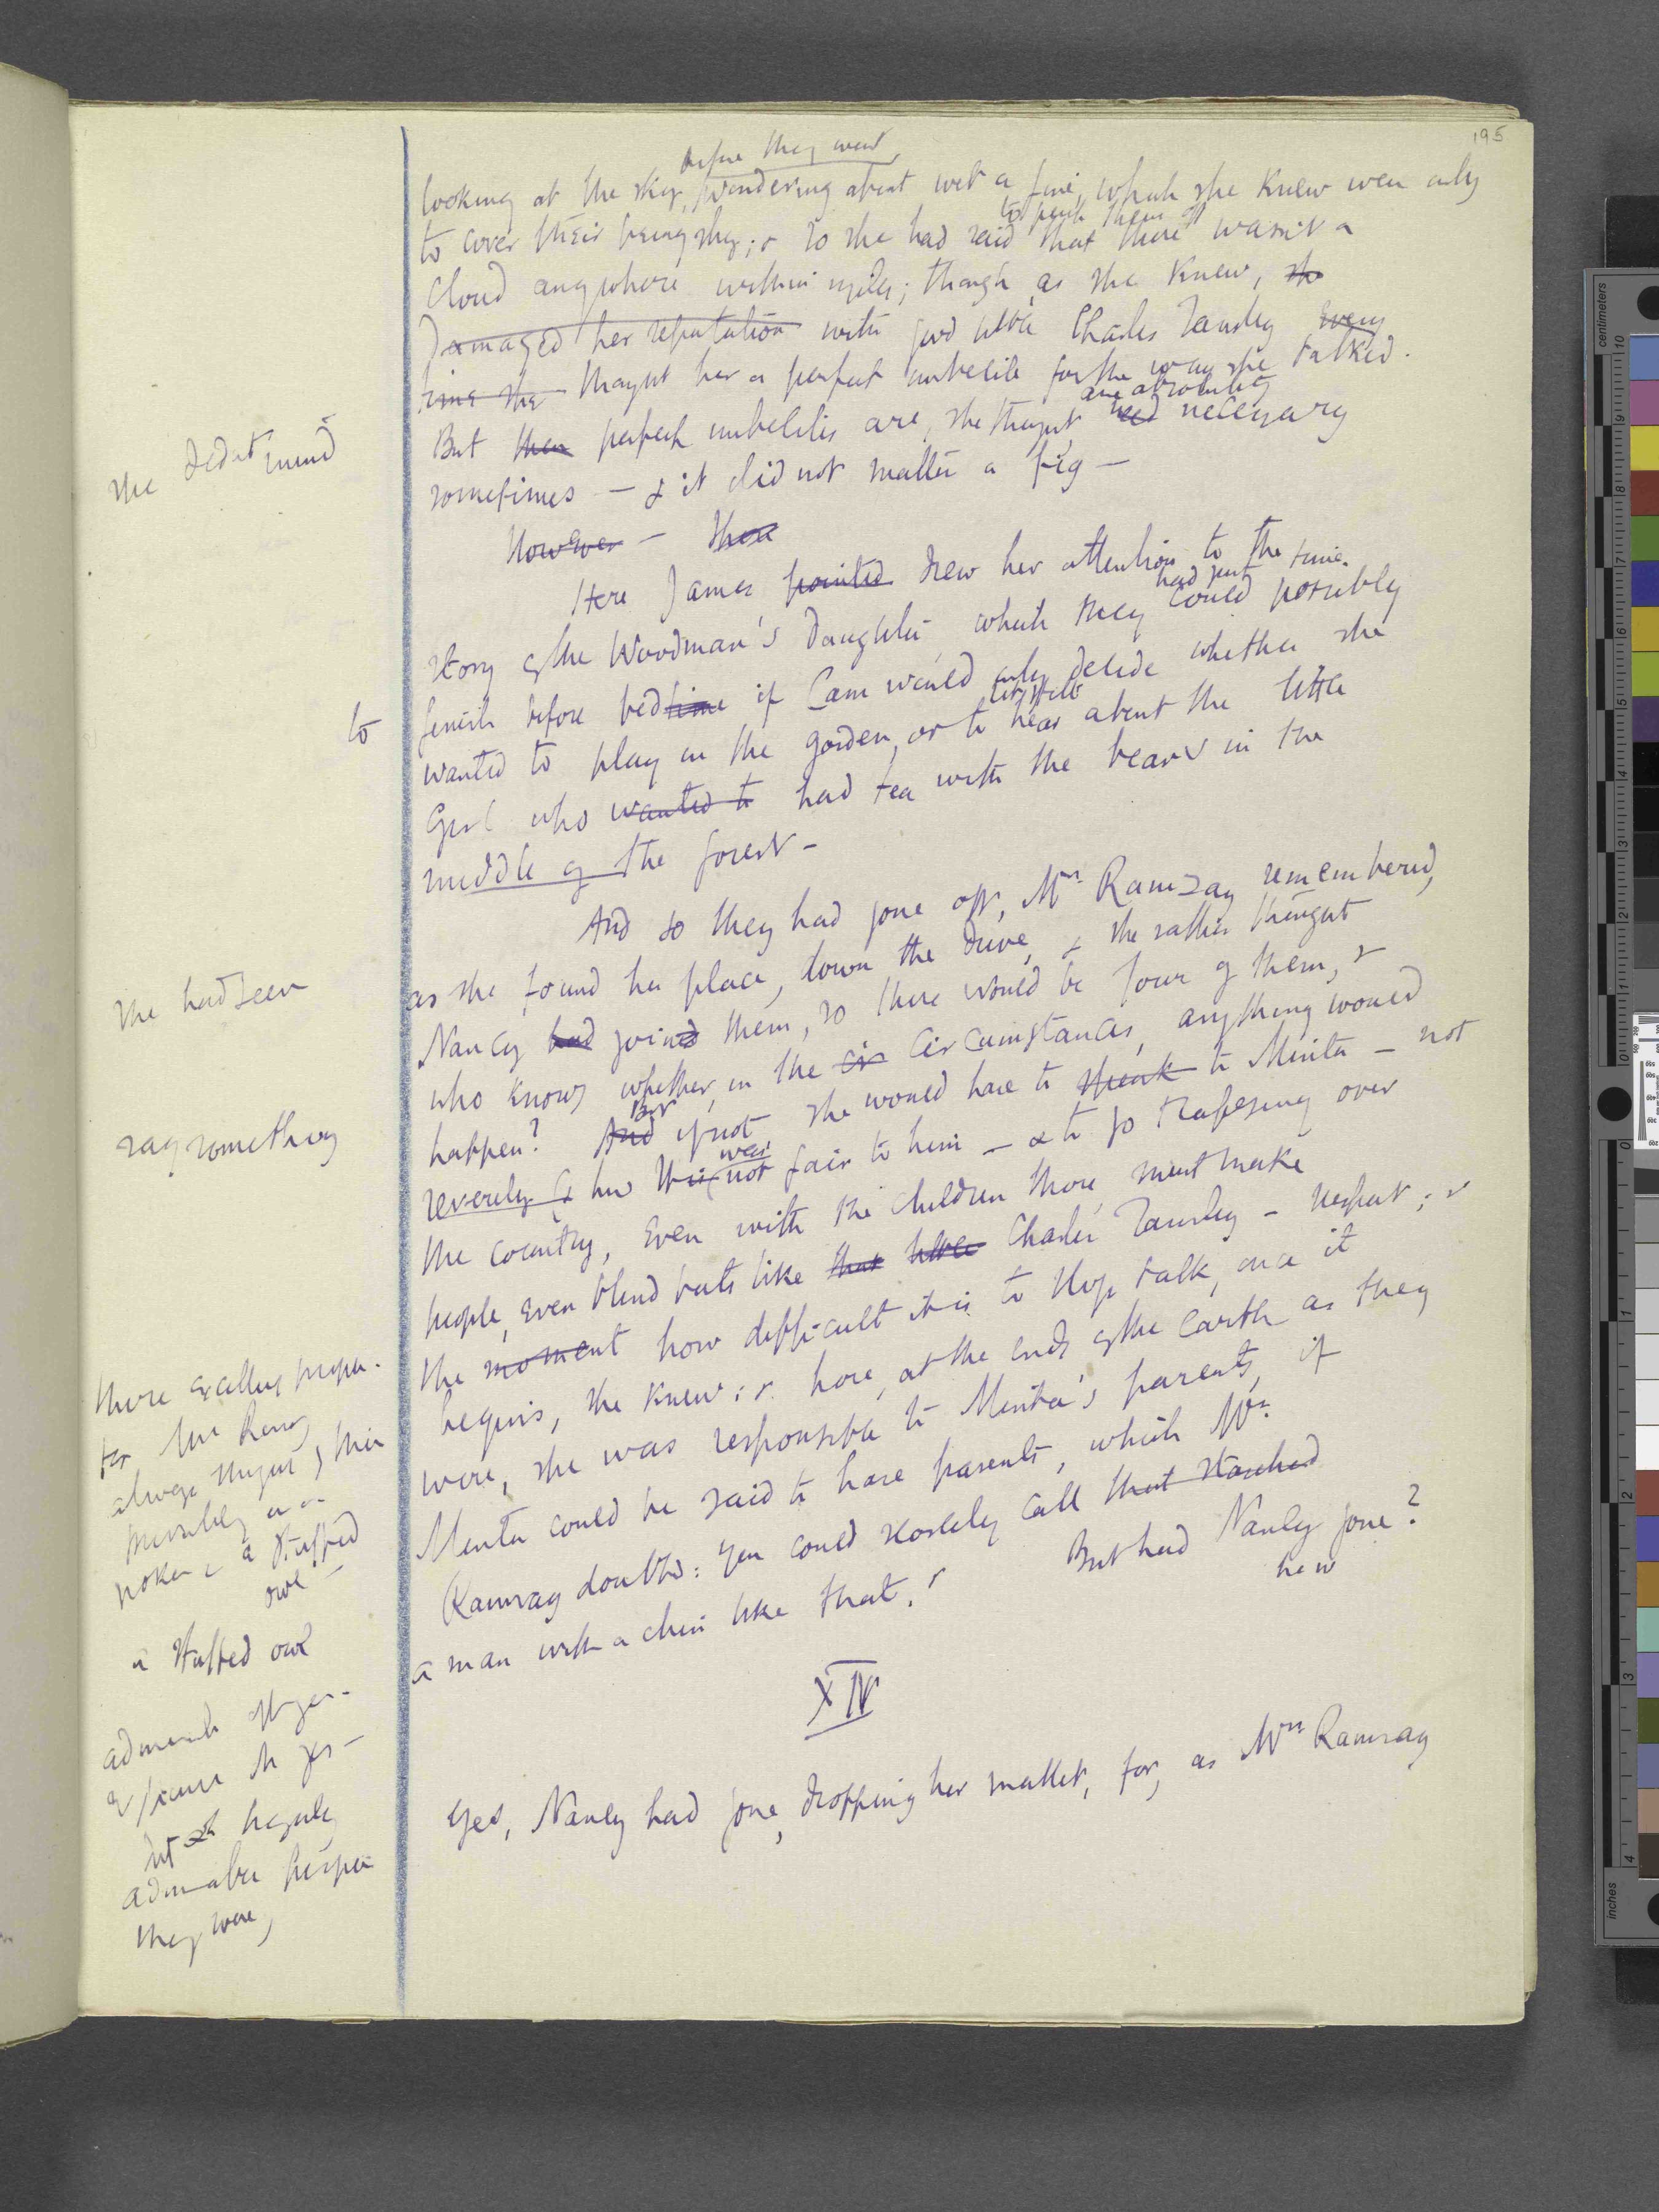 195
before they went,
looking at the sky, wondering about wet or fine, which she knew were only
to push them off
to cover their being shy; & so she had said that there wasn't a
cloud anywhere within miles; though, as she knew, she
Damaged her reputation with good little Charles Tansley every
time she thought her a perfect imbecile for the way she talked.
are absolutely
But then perfect imbeciles are, she thought, necessary
she didnt mind
sometimes — & it did not matter a fig —
However — there
Here James pointed drew her attention to the
had just time.
story of the Woodman's Daughter, which they could possibly
to
finish before bedtime if Cam would only decide whether she
wanted to play in the garden, or to hear about the little
Girl who wanted to had tea with the bears in the
middle of the forest —
And so they had gone off, Mrs Ramsay remembered,
as she found her place, down the drive, & she rather thought
she had seen
Nancy had joined them, so there would be four of them, &
who knows whether, in the cir circumstances, anything would
But
happen? And if not, she would have to speak to Minta — not
say something
was
severely & but this not fair to him — & to go trapesing over
the country, even with the children there, must make
people, even blind bats like that little Charles Tansley — suspect; &
the moment how difficult it is to stop talk, once it
begins, she knew; & here, at the ends of the earth as they
were, she was responsible to Minta's parents, if
Minta could be said to have parents, which Mrs
Ramsay doubted: you could scarcely call that starched
a man with a chin like that. But had Nancy gone?
new
there excellent
for Mrs Ramsay
always thought
poker & a stuffed
owl —
a stuffed owl
they were,
XIV
Yes, Nancy had gone, dropping her mallet, for, as Mrs Ramsay